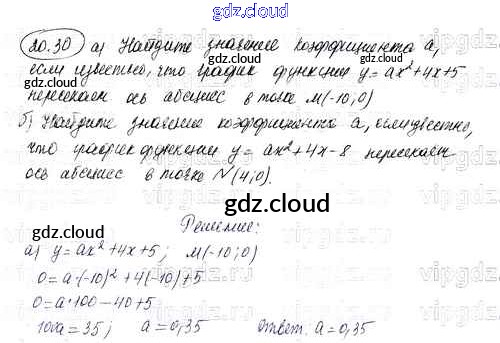 gdz.cloud
20.30 а) Найдите значение коэффициента а,
если известно, что график функции y = ax² + 4x + 5
пересекает ось абсцисс в точке M(-10; 0)
б) Найдите значение коэффициента а, если известно,
что график функции y = ax² + 4x - 8 пересекает
ось абсцисс в точке N(4; 0).
gdz.cloud
Решение:
а) y = ax² + 4x + 5; M(-10; 0)
0 = a·(-10)² + 4(-10) + 5
0 = a·100 - 40 + 5
100a = 35; a = 0,35 Ответ: a = 0,35